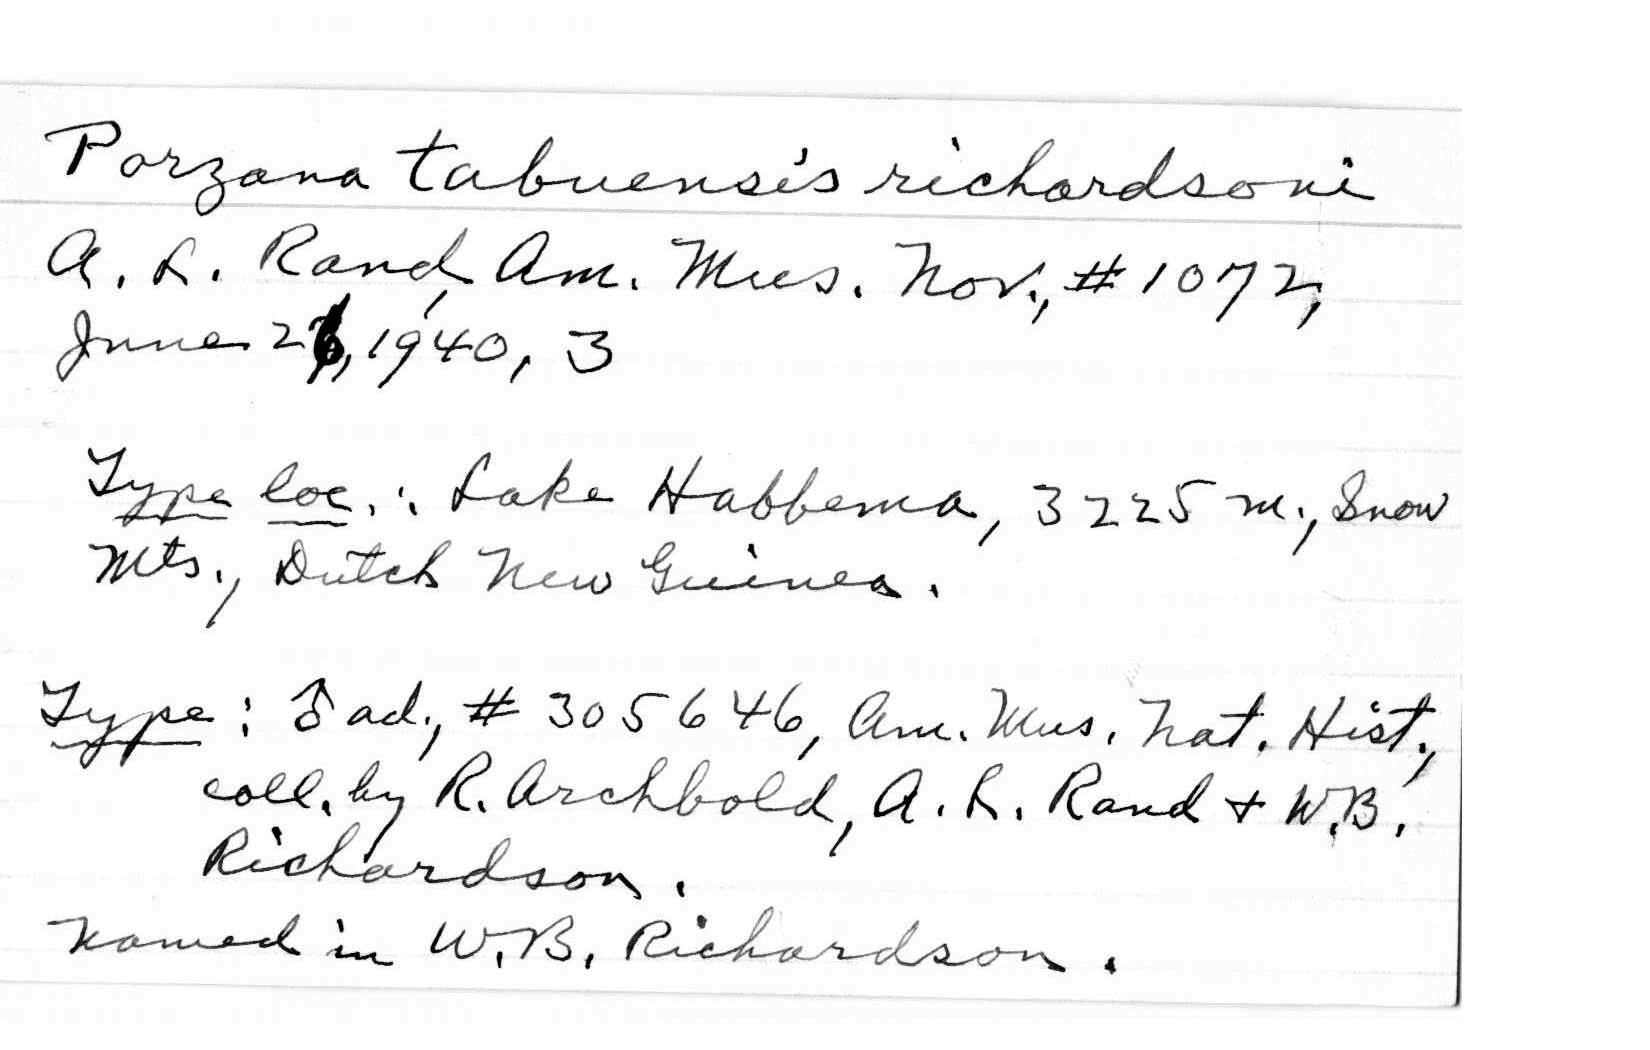 Porzana tabuensis richardsoni
A. L. Rand, Am. Mus. Nov., #1072,
June 26, 1940, 3
Type loc.: Lake Habbema, 3225 m., Snow
Mts., Dutch New Guinea.
Type: ♂ ad., # 305646, Am. Mus. Nat. Hist.,
coll. by R. Archbold, A. L. Rand + W.B.
Richardson.
Named in W.B. Richardson.